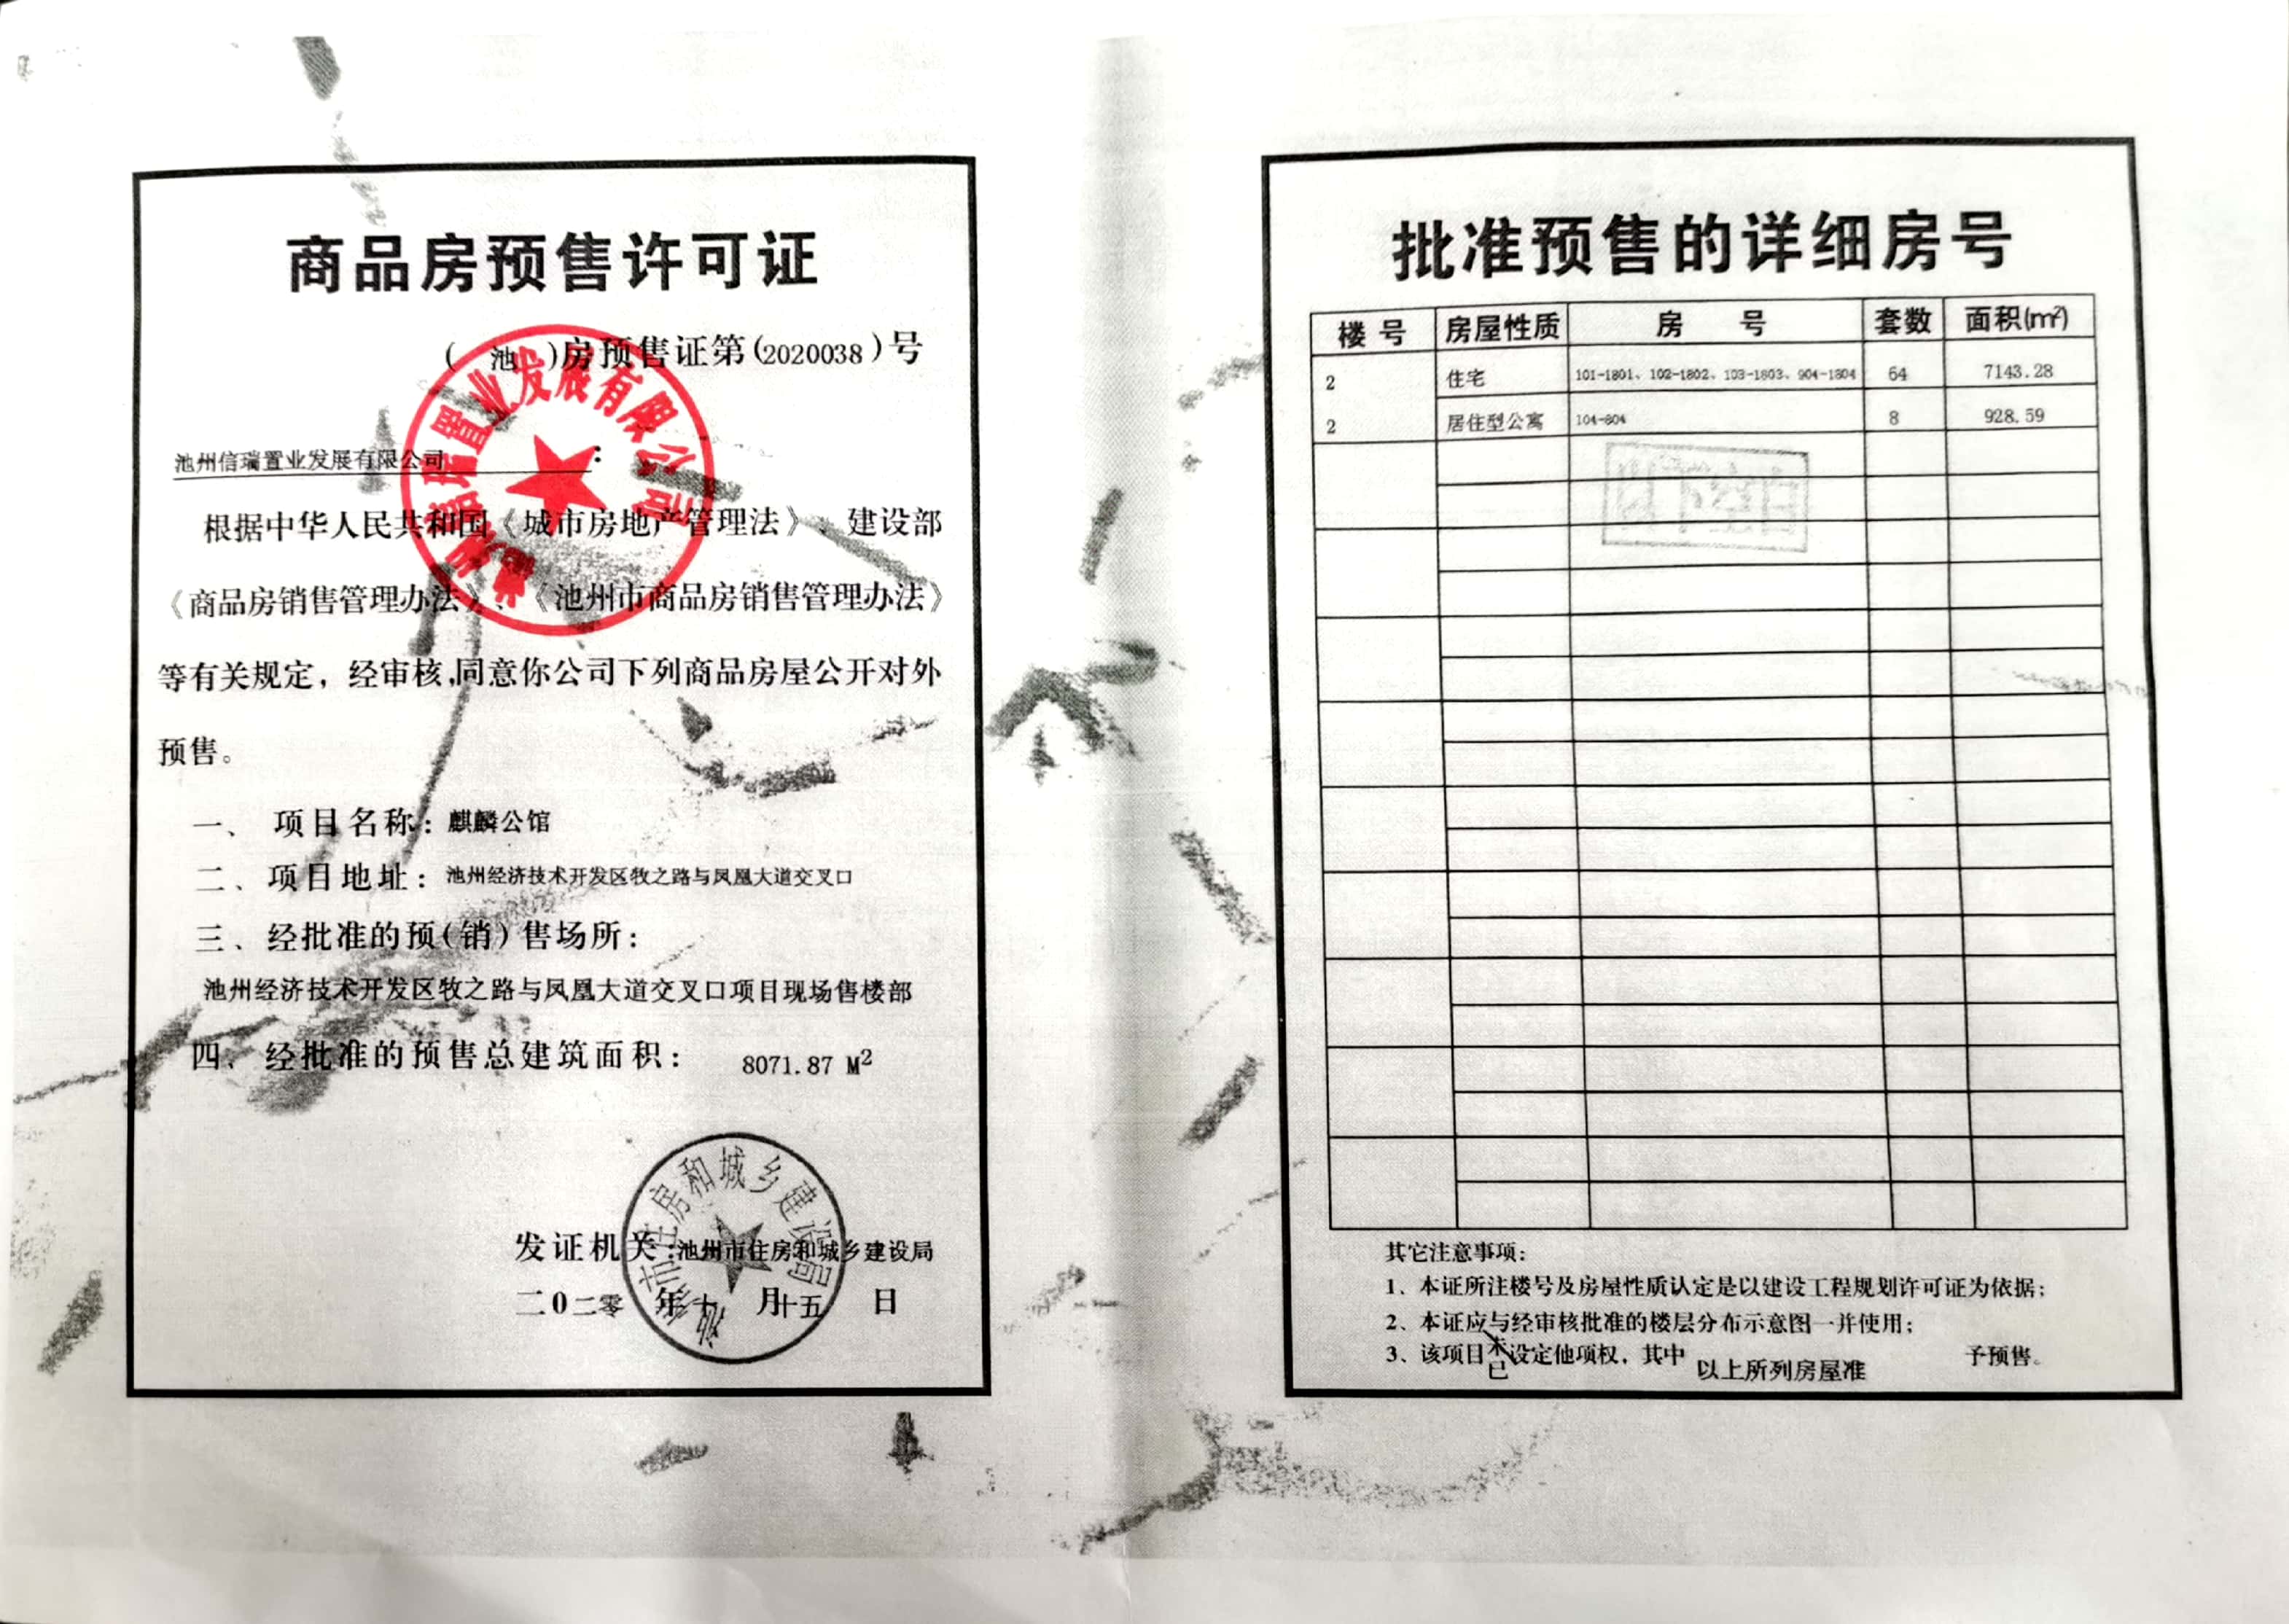 商品房预售许可证
(池)房预售证第(2020038)号
池州信瑞置业发展有限公司:
根据中华人民共和国《城市房地产管理法》、建设部
《商品房销售管理办法》、《池州市商品房销售管理办法》
等有关规定,经审核,同意你公司下列商品房屋公开对外
预售。
一、项目名称:麒麟公馆
二、项目地址:池州经济技术开发区牧之路与凤凰大道交叉口
三、经批准的预(销)售场所:
池州经济技术开发区牧之路与凤凰大道交叉口项目现场售楼部
四、经批准的预售总建筑面积: 8071.87 M²
发证机关:池州市住房和城乡建设局
二0二零 年 月十五 日
池州信瑞置业发展有限公司
池州市住房和城乡建设局
批准预售的详细房号
楼号 房屋性质 房号 套数 面积(m²)
2 住宅 101-1801、102-1802、103-1803、904-1804 64 7143.28
2 居住型公寓 104-804 8 928.59
其它注意事项:
1、本证所注楼号及房屋性质认定是以建设工程规划许可证为依据;
2、本证应与经审核批准的楼层分布示意图一并使用;
3、该项目未/已设定他项权,其中 以上所列房屋准 予预售。